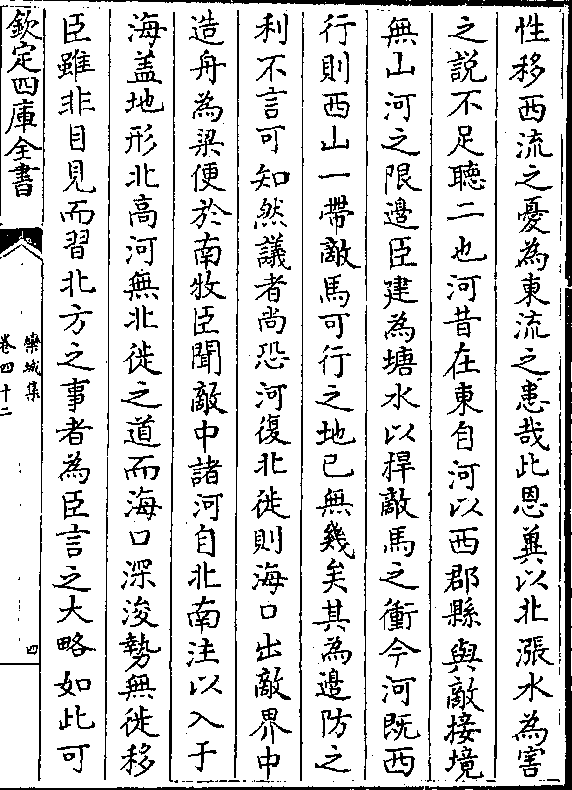 性移西流之憂為東流之患哉此恩冀以北漲水為害
之説不足聽二也河昔在東自河以西郡縣與敵接境
無山河之限邉臣建為塘水以捍敵馬之衝今河既西
行則西山一帶敵馬可行之地已無幾矣其為邉防之
利不言可知然議者尚恐河復北徙則海口出敵界中
造舟為梁便於南牧臣聞敵中諸河自北南注以入于
海盖地形北高河無北徙之道而海口深浚勢無徙移
臣雖非目見而習北方之事者為臣言之大略如此可
欽定四庫全書
欒城集
卷四十二
四